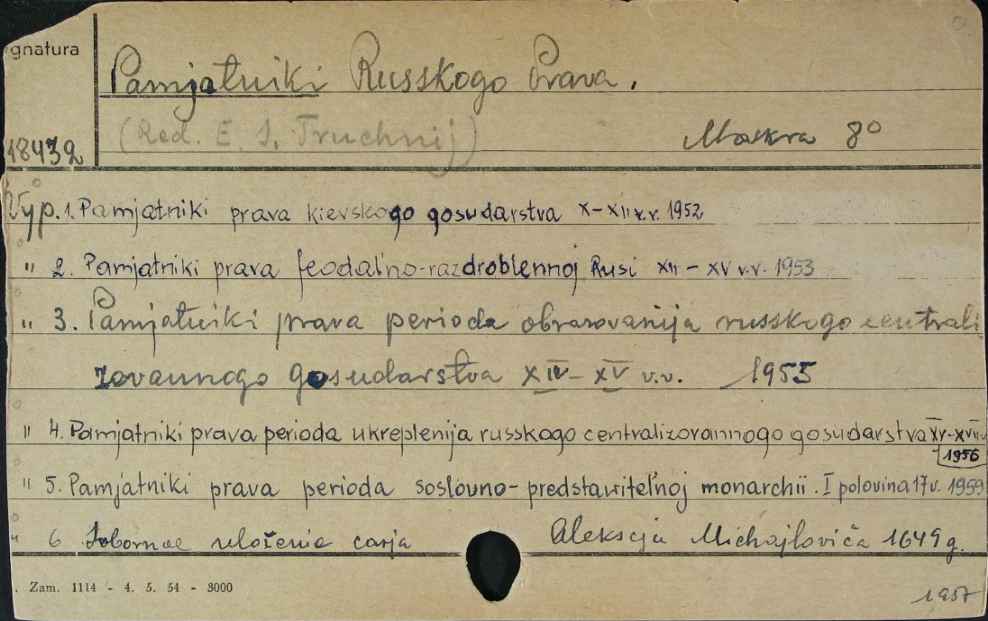 gnatura
Pamjatniki Russkogo Prava.
(Red. E. I. Truchnij)
Moskva 8°
18432
Vyp. 1. Pamjatniki prava kievskogo gosudarstva X-XII v.v. 1952
" 2. Pamjatniki prava feodal'no-razdroblennoj Rusi XII - XV v.v. 1953
" 3. Pamjatniki prava perioda obrazovanija russkogo centrali
zovannogo gosudarstva XIV-XV v.v. 1955
" 4. Pamjatniki prava perioda ukreplenija russkogo centralizovannogo gosudarstva XV-XVII
1956
" 5. Pamjatniki prava perioda soslovno-predstavitel'noj monarchii. I polovina 17 v. 1959
" 6. Sobornoe uloženie carja Aleksеja Michajloviča 1649 g.
1957
. Zam. 1114 - 4. 5. 54 - 3000